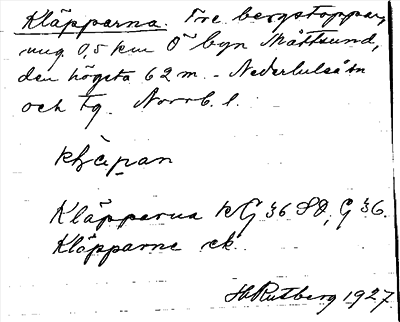 Kläpparna. Tre bergstoppar,
ung. 0,5 km Ö byn Måttsund,
den högsta 62 m. - Nederluleå sn
och tg. Norrb. l.
Kläpparna kG 36 SO, G 36.
Kläpparne ek.
H Rutberg 1927